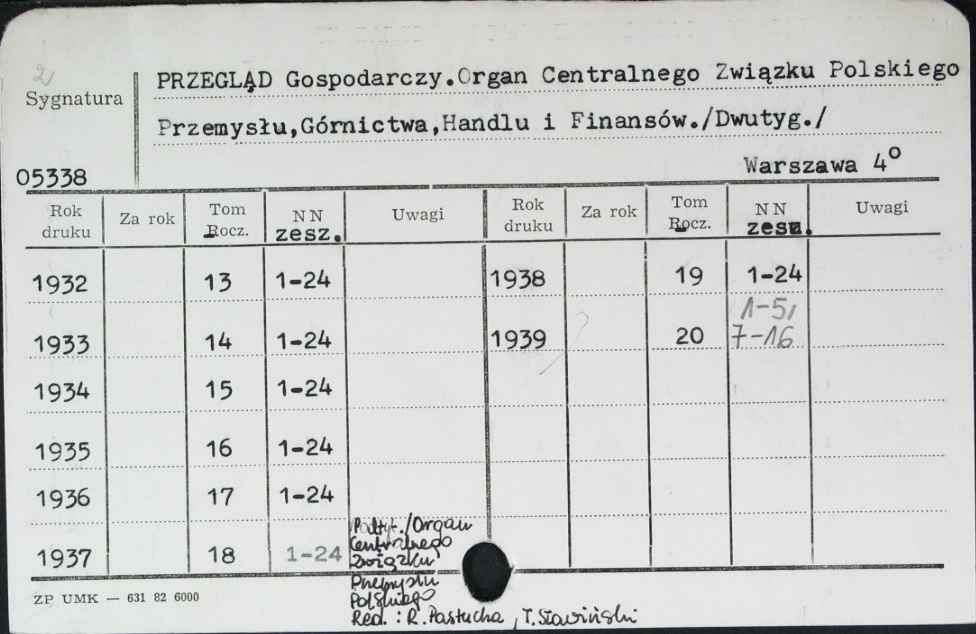 2
Sygnatura
PRZEGLĄD Gospodarczy.Organ Centralnego Związku Polskiego
Przemysłu,Górnictwa,Handlu i Finansów./Dwutyg./
Warszawa 4°
05338
Rok druku Za rok Tom Rocz. NN zesz. Uwagi Rok druku Za rok Tom Rocz. NN zesz. Uwagi
1932 13 1-24 1938 19 1-24
1933 14 1-24 1939 ? 20 1-5, 7-16
1934 15 1-24
1935 16 1-24
1936 17 1-24
1937 18 1-24
Podtyt./Organ
Centralnego
Związku
Przemysłu
Polskiego
Red.: R. Pastucha, T. Sławiński
ZP UMK — 631 82 6000